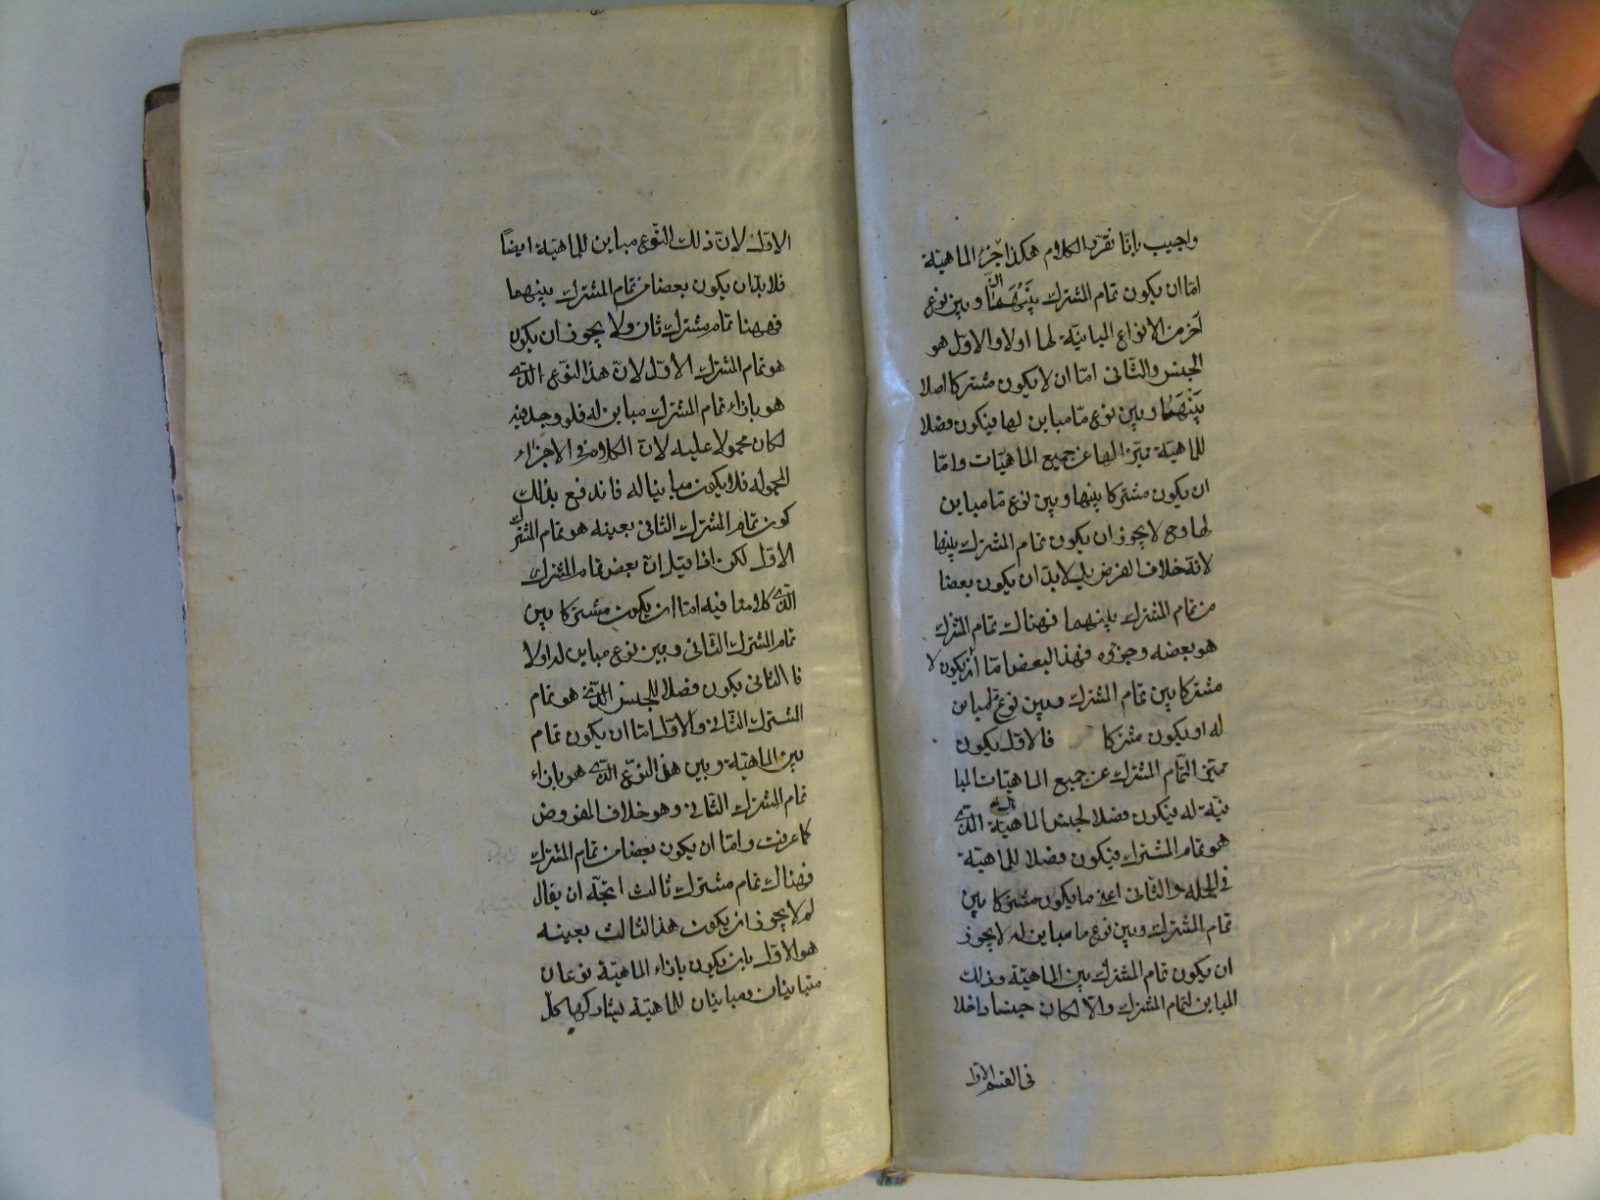 واجيب بانّا نقرّر الكلام هكذا جزء الماهيّة
امّا ان يكون تمام المشترك بينهما وبين نوع
آخر من الانواع المباينة لها اولا والاول هو
الجنس والثانى امّا ان لا يكون مشتركا اصلا
بينهما وبين نوع مّا مباين لها فيكون فصلا
للماهيّة مميّزا لها عن جميع الماهيّات وامّا
ان يكون مشتركا بينها وبين نوع مّا مباين
لها وح لا يجوز ان يكون تمام المشترك بينها
لانه خلاف الفرض بل لابدّ ان يكون بعضا
من تمام المشترك بينهما فهناك تمام المشترك
هو بعضه وجزؤه فهذا البعض امّا أن يكون لا
مشتركا بين تمام المشترك وبين نوع مّا مباين
له او يكون مشتركا فالاول يكون
مميّز التمام المشترك عن جميع الماهيّات المبا
ينة له فيكون فصلا لجنس الماهيّة الذى
هو تمام المشترك فيكون فصلا للماهيّة
فى الجملة والثانى اعنى ما يكون مشتركا بين
تمام المشترك وبين نوع ما مباين له لا يجوز
ان يكون تمام المشترك بين الماهيّة وذلك
المباين لتمام المشترك والّا لكان جنسا داخلا
فى القسم الاول
الاوّل لانّ ذلك النوع مباين للماهيّة ايضاً
فلابدّ ان يكون بعضا من تمام المشترك بينهما
فههنا تمام مشترك ثان ولا يجوز ان يكون
هو تمام المشترك الاوّل لانّ هذا النوع الذى
هو بازاء تمام المشترك مباين له فلو وجد فيه
لكان محمولا عليه لانّ الكلام فى الاجزاء
المحمولة فلا يكون مباينا له فاندفع بذلك
كون تمام المشترك الثانى بعينه هو تمام المشترك
الاوّل لكن اذا قيل انّ بعض تمام المشترك
الذى كلامنا فيه امّا ان يكون مشتركا بين
تمام المشترك الثانى وبين نوع مباين له اولا
فالثانى يكون فصلا للجنس الذى هو تمام
المشترك الثانى والاوّل امّا ان يكون تمام
بين الماهيّة وبين هذا النوع الذى هو بازاء
تمام المشترك الثانى وهو خلاف المفروض
كما عرفت وامّا ان يكون بعضا من تمام المشترك
فهناك تمام مشترك ثالث اتجه ان يقال
لم لا يجوز ان يكون هذا الثالث بعينه
هو الاوّل بان يكون بازاء الماهيّة نوعان
متباينان ومباينان للماهيّة يشاركها كلّ